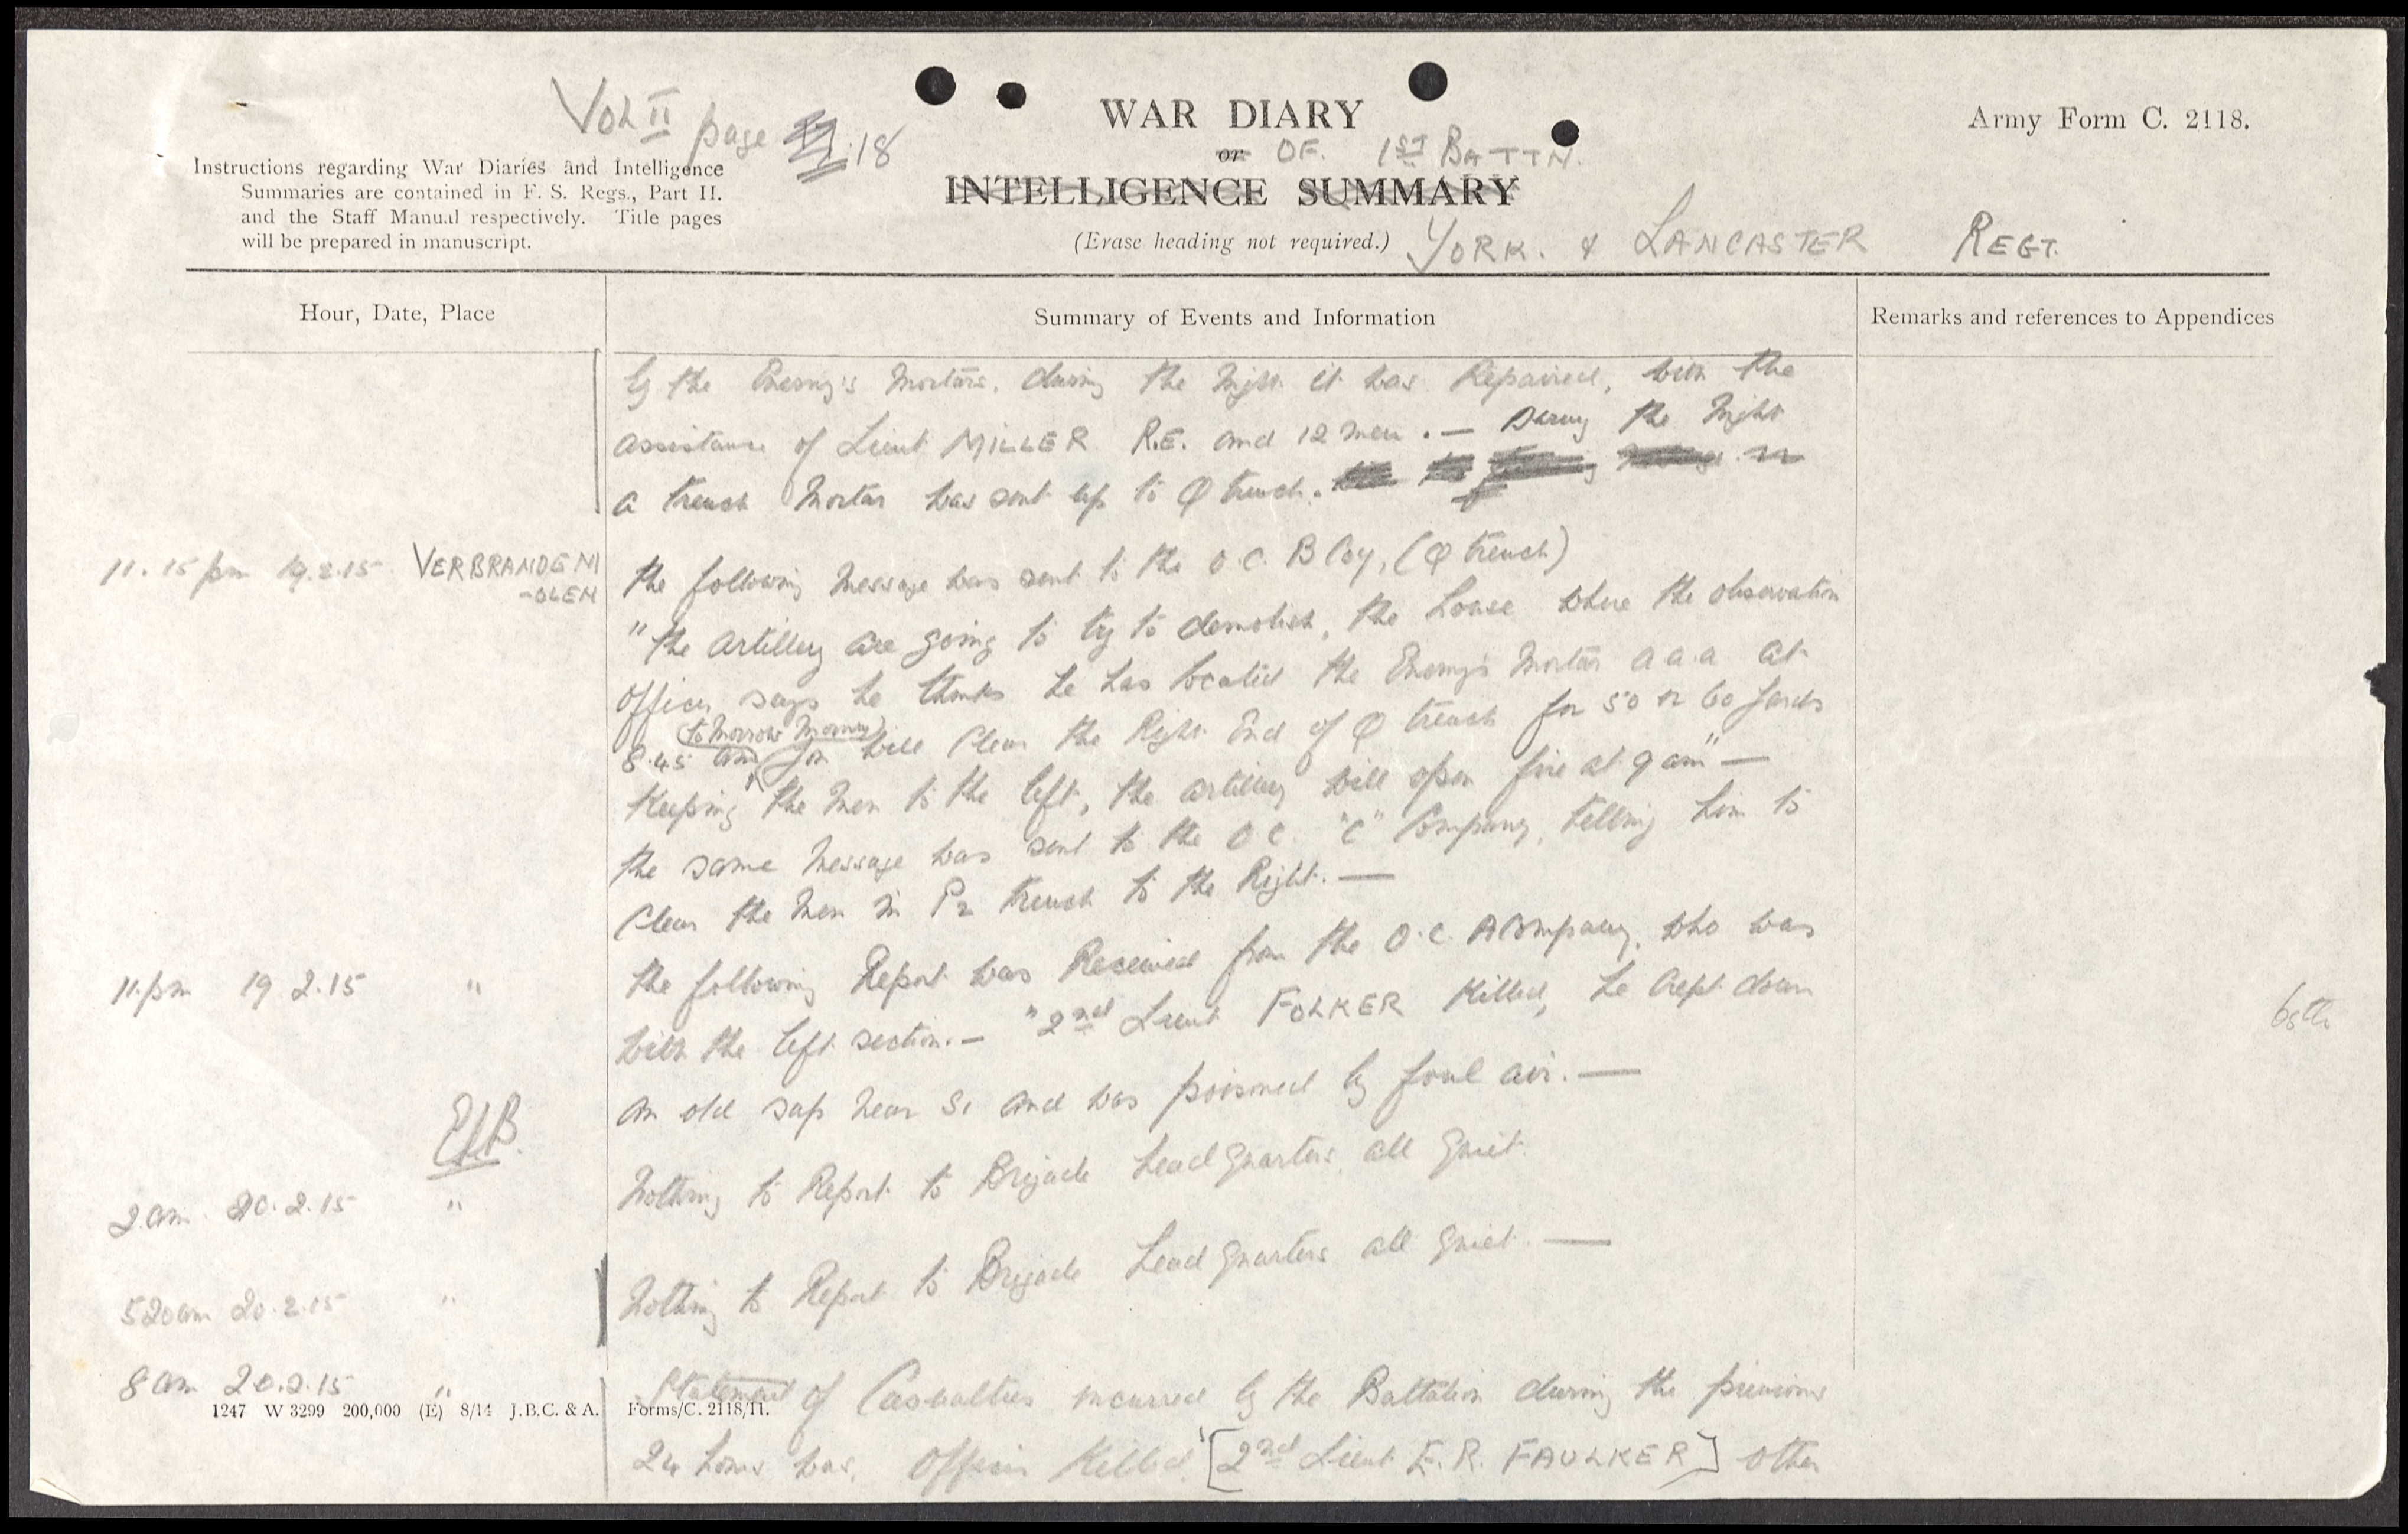 Vol II page 18
WAR DIARY
Army Form C. 2118.
or OF. 1ST BATTN.
INTELLIGENCE SUMMARY
(Erase heading not required.) YORK. & LANCASTER REGT.
Instructions regarding War Diaries and Intelligence
Summaries are contained in F. S. Regs., Part II.
and the Staff Manual respectively. Title pages
will be prepared in manuscript.
Hour, Date, Place
Summary of Events and Information
Remarks and references to Appendices
by the Enemy's Mortars, during the Night it was Repaired, with the
assistance of Lieut MILLER R.E. and 12 men. — During the Night
a trench Mortar was sent up to Q trench.
11.15 pm 19.2.15 VERBRANDEN
-OLEN
the following Message was sent to the O.C. B Coy, (Q trench)
"the artillery are going to try to demolish, the house where the observation
officer says he thinks he has located the Enemy's Mortar a.a.a at
(tomorrow Morning)
8.45 am you will Clear the Right End of Q trench for 50 or 60 yards
Keeping the Men to the left, the artillery will open fire at 9 am" —
the same Message was sent to the O.C. "C" Company, telling him to
Clear the Men in P2 trench to the Right. —
11.pm 19 2.15 "
the following Report was Received from the O.C. A Company, who was
with the left section. — "2nd Lieut FOLKER Killed, he crept down
an old sap near S1 and was poisoned by foul air. —
EJB.
2 am 20.2.15 "
Nothing to Report to Brigade Headquarters, all Quiet.
520am 20.2.15 "
Nothing to Report to Brigade Headquarters all Quiet —
8 am 20.2.15 "
Statement of Casualties incurred by the Battalion during the previous
24 hours was, Officer Killed [2nd Lieut E.R. FAULKER] Other
1247 W 3299 200,000 (E) 8/14 J.B.C. & A. Forms/C. 2118/11.